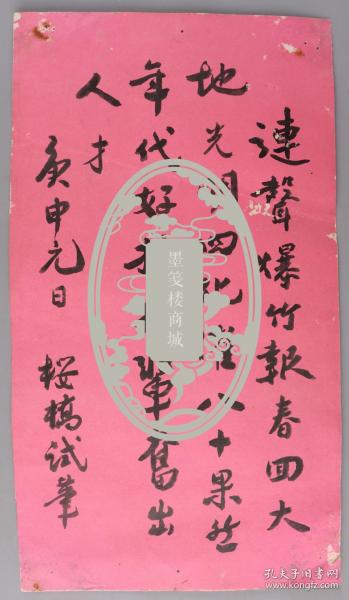 連聲爆竹報春回大
地光明四化催八十果然
年代好輩奮出
人才
庚申元日 試筆
墨笺楼商城
孔夫子旧书网